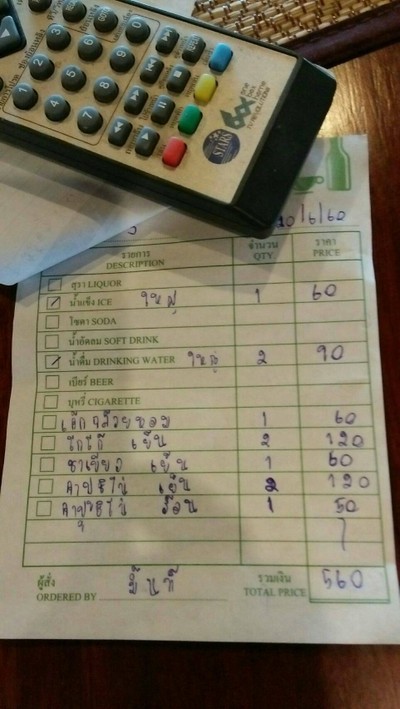 0
1 2 3
4 5 6
7 8 9
STARS
20/6/60
รายการ จำนวน ราคา
DESCRIPTION QTY. PRICE
สุรา LIQUOR
น้ำแข็ง ICE ใหญ่ 1 60
โซดา SODA
น้ำอัดลม SOFT DRINK
น้ำดื่ม DRINKING WATER ใหญ่ 2 90
เบียร์ BEER
บุหรี่ CIGARETTE
เค้กกล้วยหอม 1 60
โกโก้ เย็น 2 120
ชาเขียว เย็น 1 60
คาปูชิโน่ เย็น 2 120
คาปูชิโน่ ร้อน 1 50
ผู้สั่ง รวมเงิน
ORDERED BY TOTAL PRICE 560